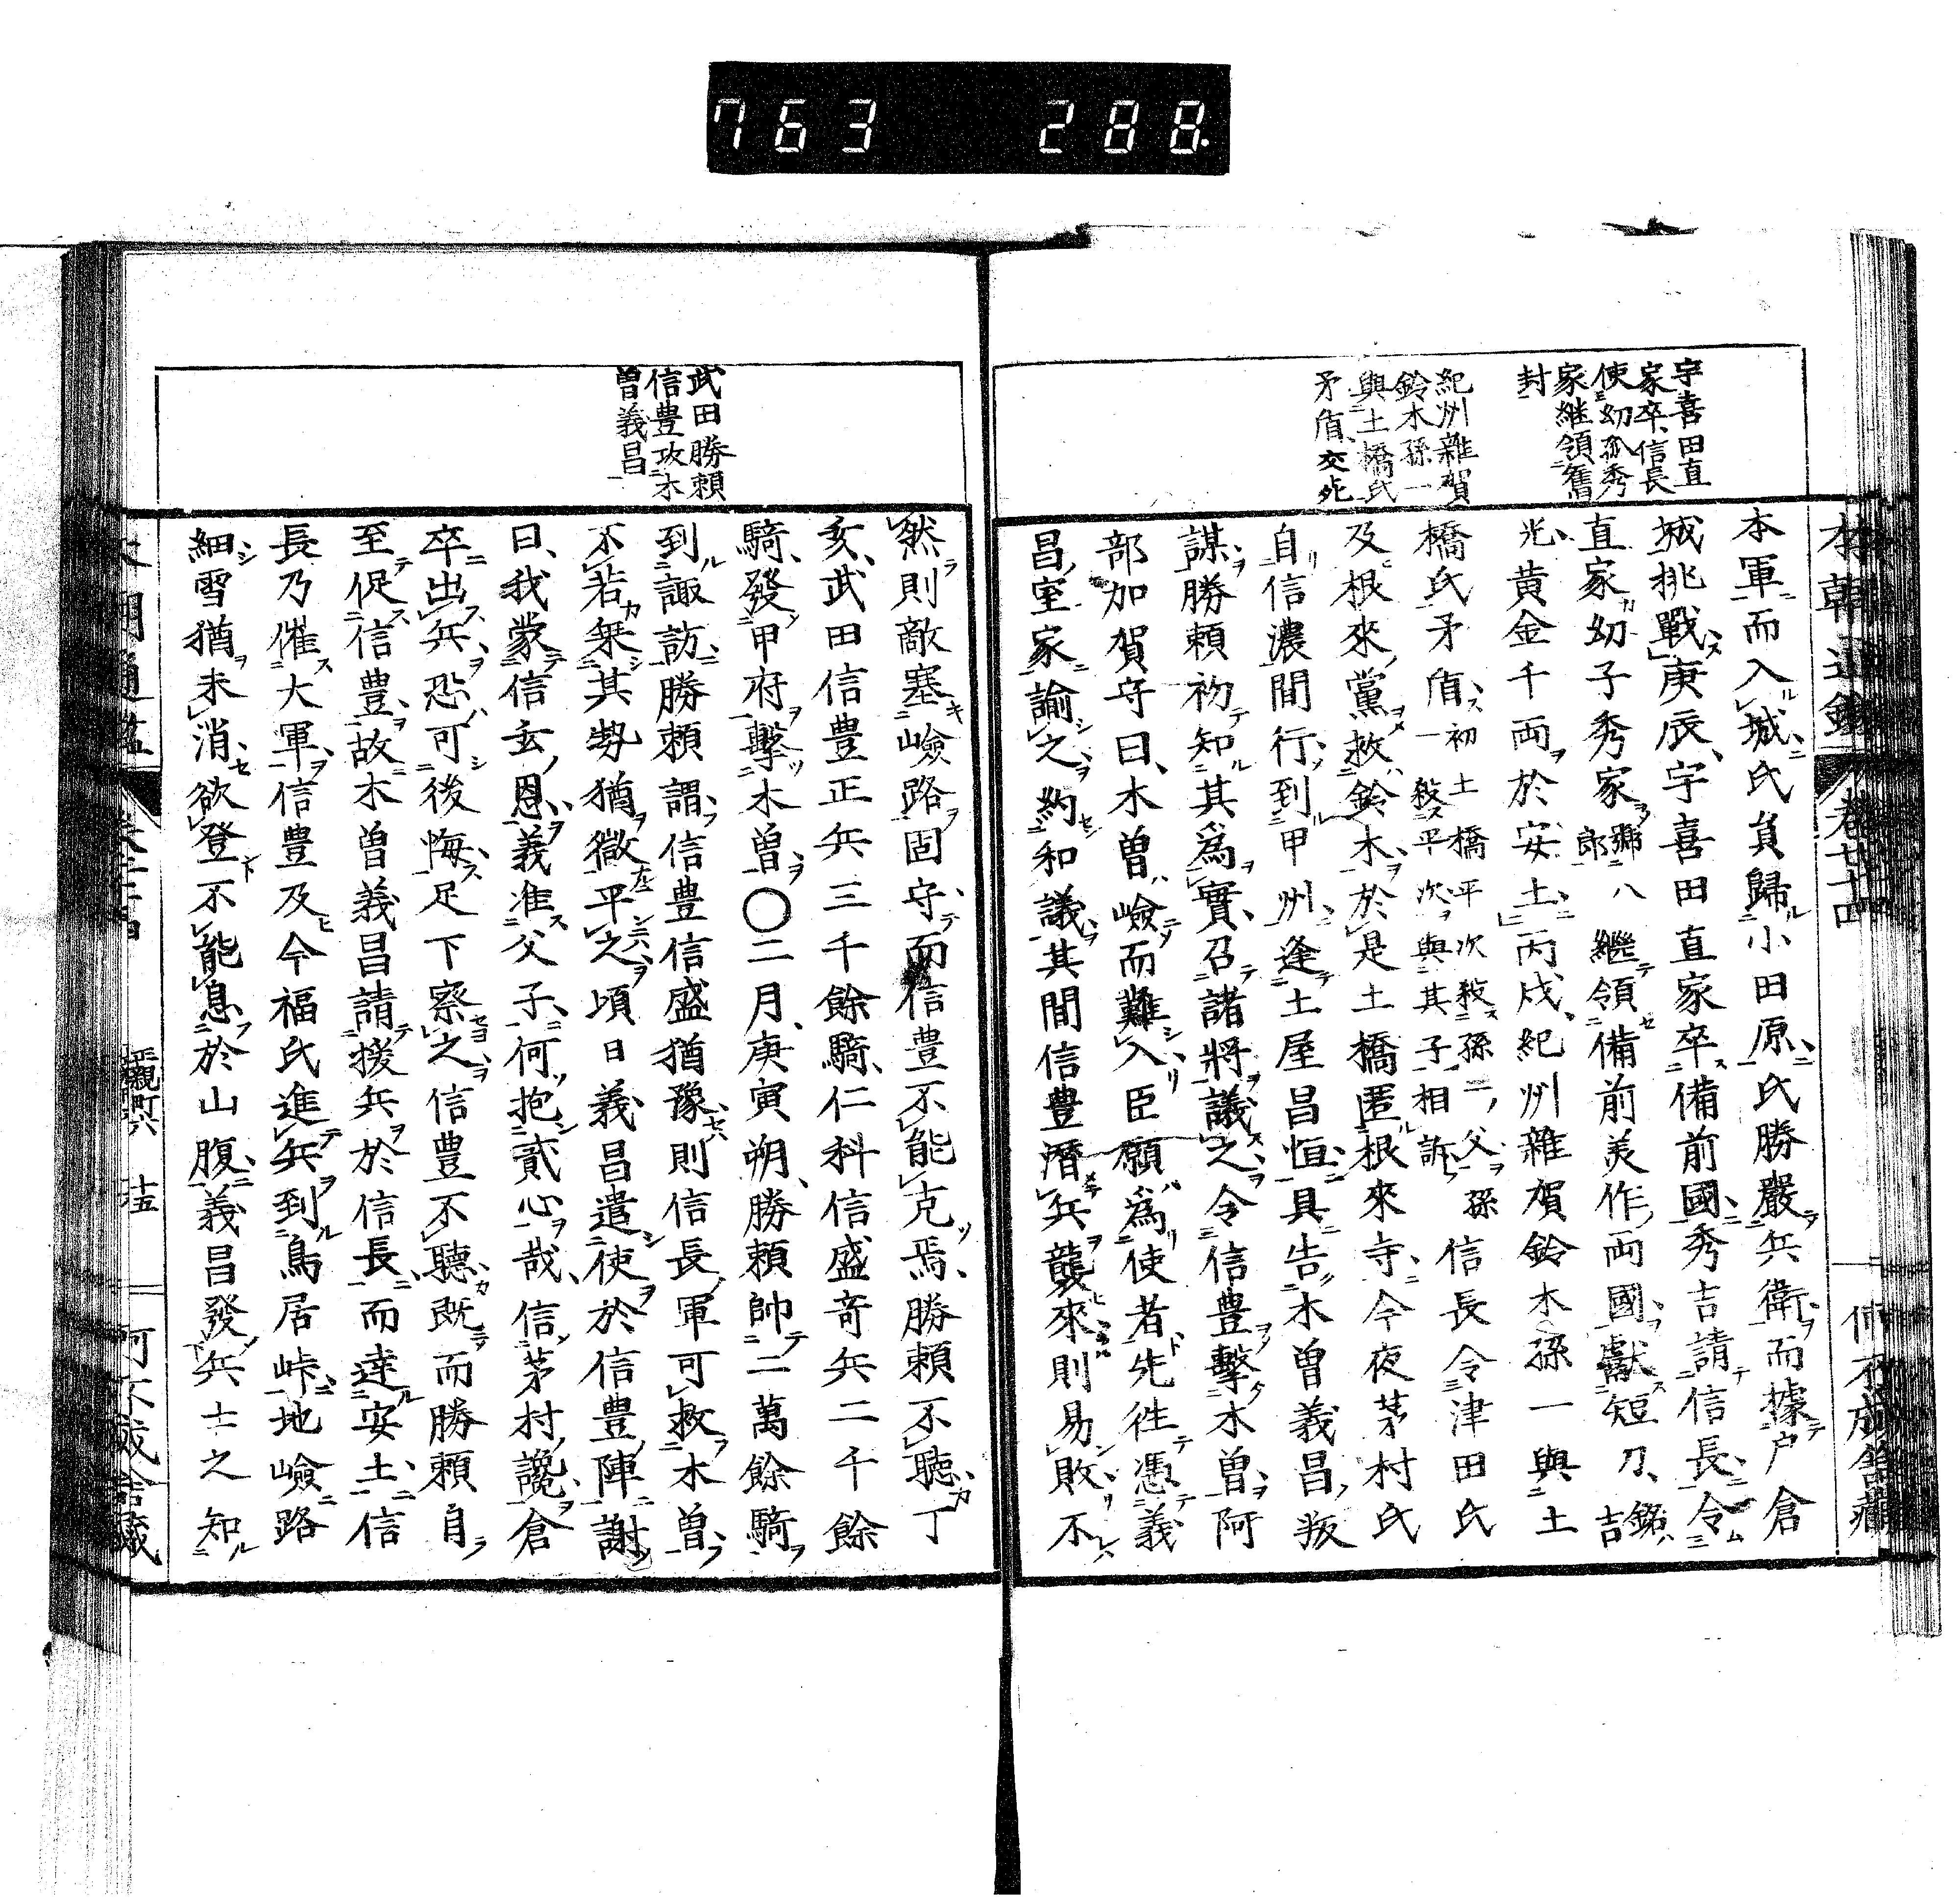 763 288.
宇喜田直
家卒、信長
使幼孤秀
家継領舊
封
紀州雜賀
鈴木孫一
與土橋氏
矛盾、交兆
本軍而入城氏負歸小田原氏勝嚴兵衛而據戸倉
城挑戰庚辰、宇喜田直家卒備前國秀吉請信長令
直家幼子秀家號八郎繼領備前美作両國獻短刀、銘吉
光、黄金千両於安土丙戍、紀州雜賀鈴木孫一與土
橋氏矛盾、初土橋平次殺孫一父孫一殺平次與其子相訴信長令津田氏
及根來黨救鈴木於是土橋匿根來寺今夜茅村氏
自信濃間行到甲州逢土屋昌恒具告木曽義昌叛
謀勝頼初知其爲實召諸將議之令信豊擊木曽阿
部加賀守曰、木曽嶮而難入臣願爲使者先徃憑義
昌室家諭之約和議其間信豊潜兵襲來則易敗不
武田勝頼
信豊攻木
曽義昌
然則敵塞嶮路固守而信豊不能克焉、勝頼不聴丁
亥、武田信豊正兵三千餘騎、仁科信盛竒兵二千餘
騎、發甲府擊木曽〇二月庚寅朔、勝頼帥二萬餘騎
到諏訪勝頼謂信豊信盛猶豫則信長軍可救木曽
不若乗其勢猶微平之頃日義昌遣使於信豊陣謝
曰、我蒙信玄恩義准父子何抱貳心哉、信茅村讒倉
卒出兵恐可後悔足下察之信豊不聴既而勝頼自
至促信豊故木曽義昌請援兵於信長而達安土信
長乃催大軍信豊及今福氏進兵到鳥居峠地嶮路
細雪猶未消欲登不能息於山腹義昌發兵士之知
十五